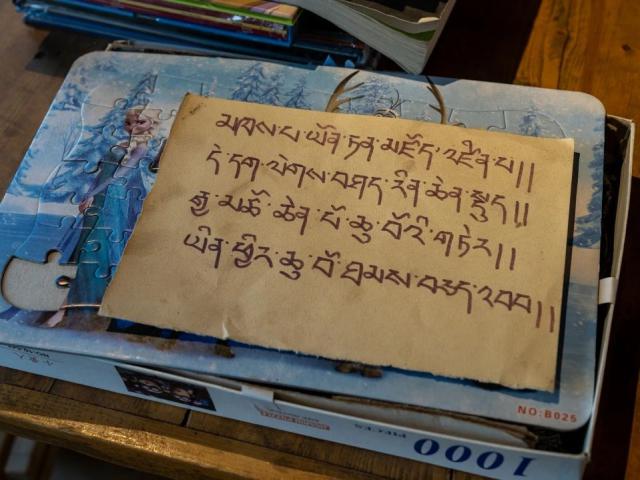 མཁས་པ་ཡོན་ཏན་མཛོད་འཛིན་པ།།
དེ་དག་ལེགས་བཤད་རིན་ཆེན་སྡུད།།
རྒྱ་མཚོ་ཆེན་པོ་ཆུ་བོའི་གཏེར།།
ཡིན་ཕྱིར་ཆུ་བོ་ཐམས་བཅད་འབབ།།
NO:B025
1000 PIECES